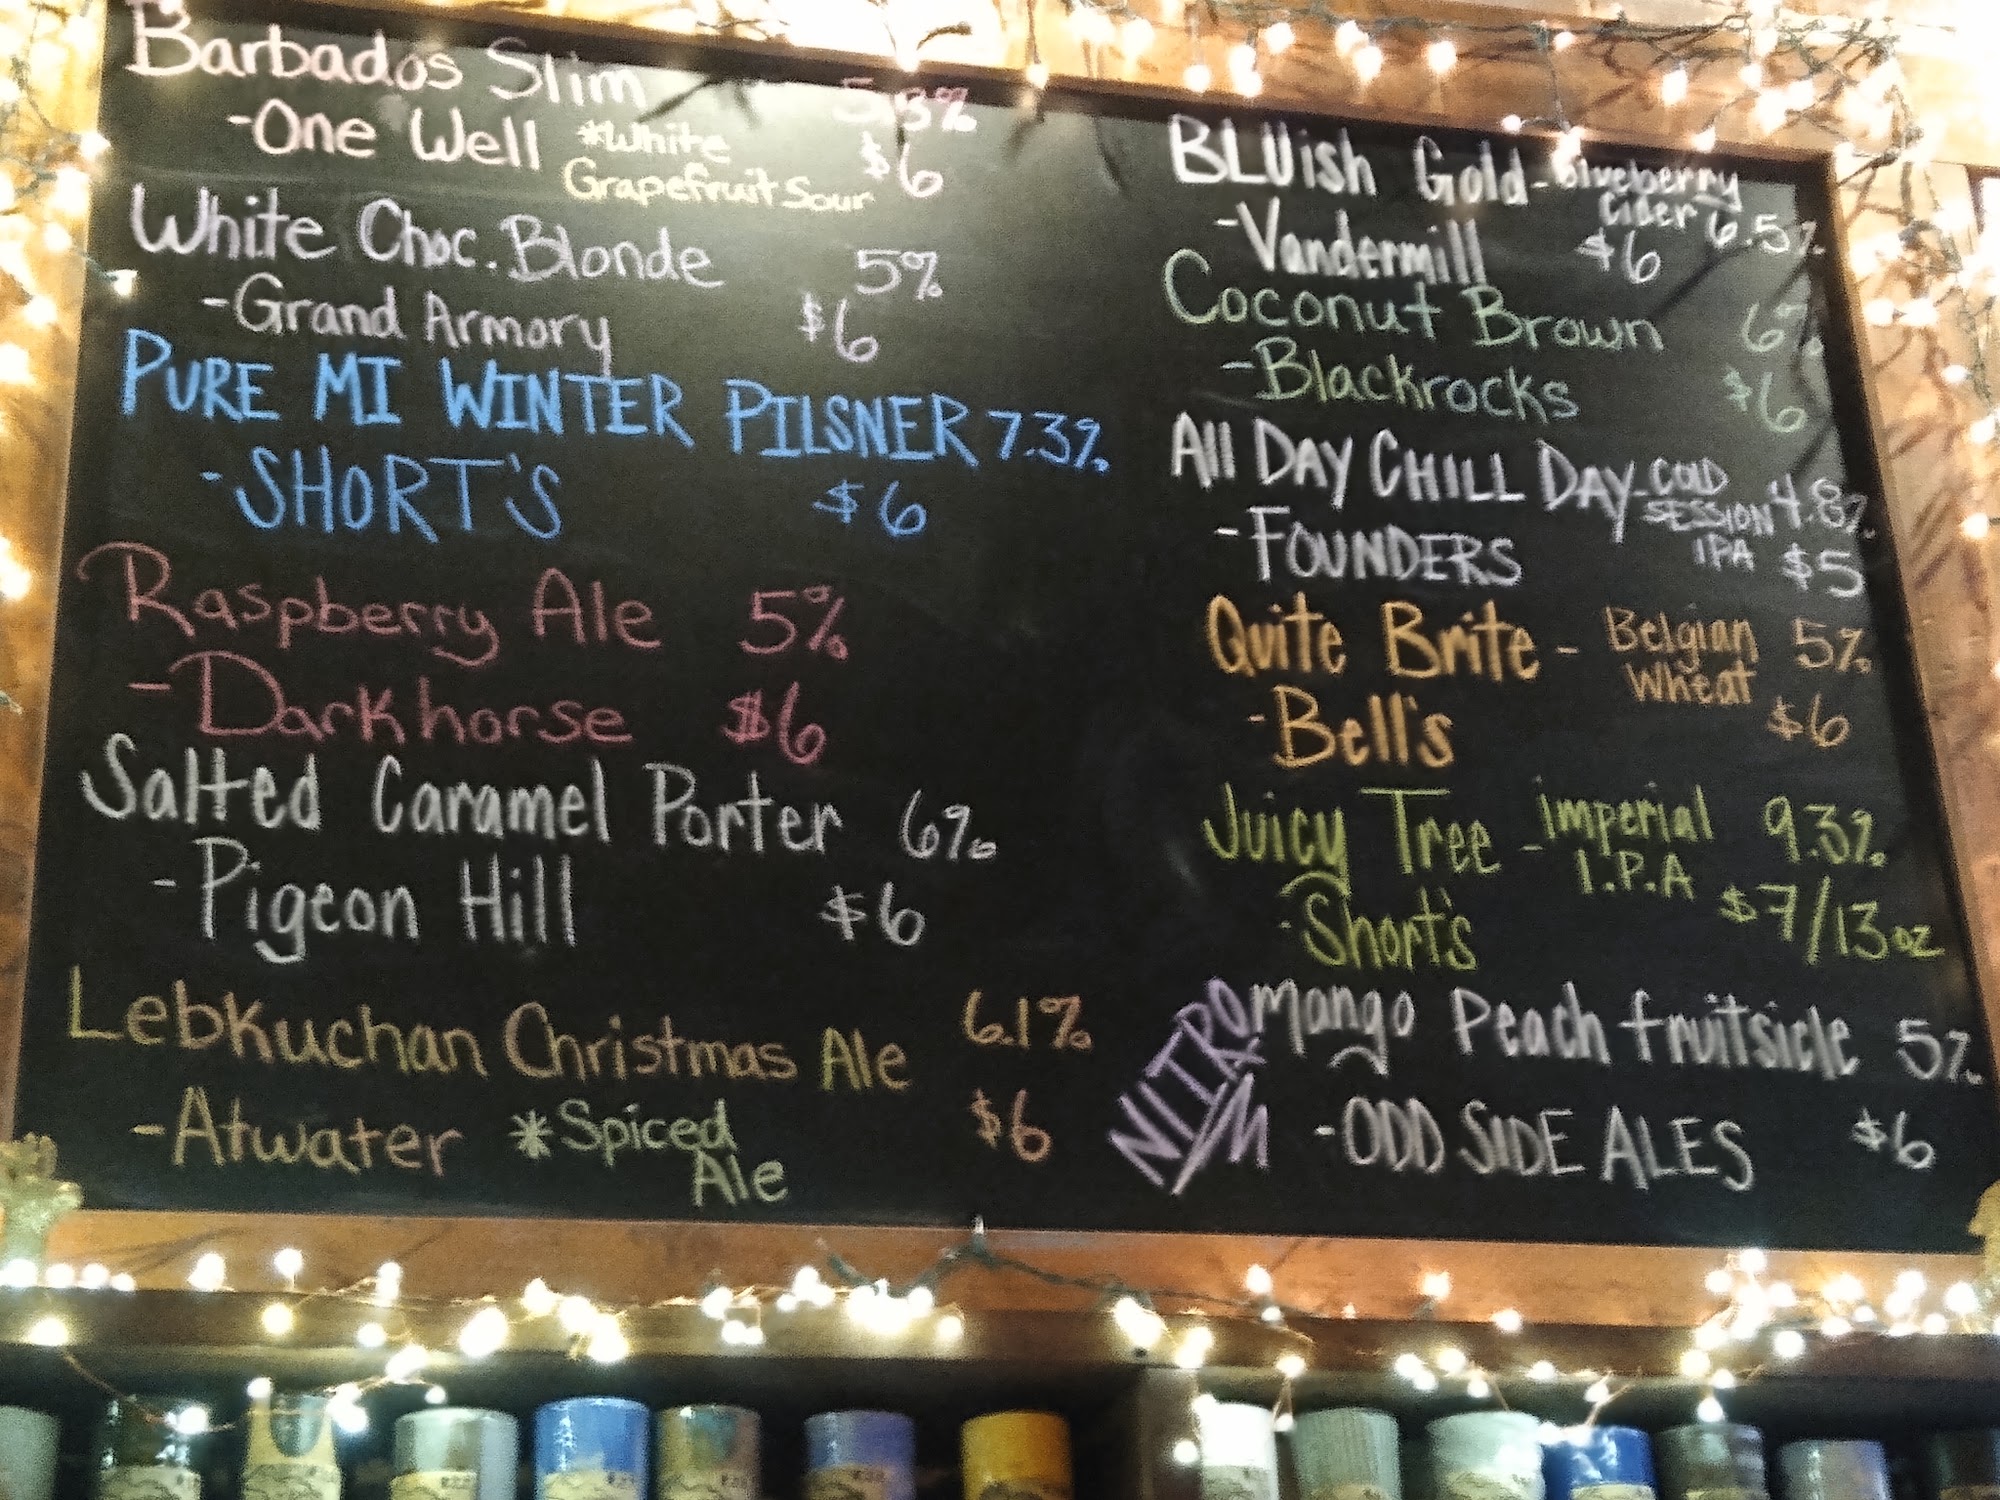 Barbados Slim 5.3%
-One Well *White Grapefruit Sour $6
White Choc. Blonde 5%
-Grand Armory $6
PURE MI WINTER PILSNER 7.3%
-SHORT'S $6
Raspberry Ale 5%
-Darkhorse $6
Salted Caramel Porter 6%
-Pigeon Hill $6
Lebkuchan Christmas Ale 6.1%
-Atwater *Spiced Ale $6
BLUish Gold - Blueberry Cider 6.5%
-Vandermill $6
Coconut Brown 6%
-Blackrocks $6
All DAY CHILL DAY - COLD SESSION IPA 4.8%
-FOUNDERS $5
Quite Brite - Belgian Wheat 5%
-Bell's $6
Juicy Tree - imperial I.P.A 9.3%
-Short's $7/13oz
NITRO mango Peach fruitsicle 5%
-ODD SIDE ALES $6